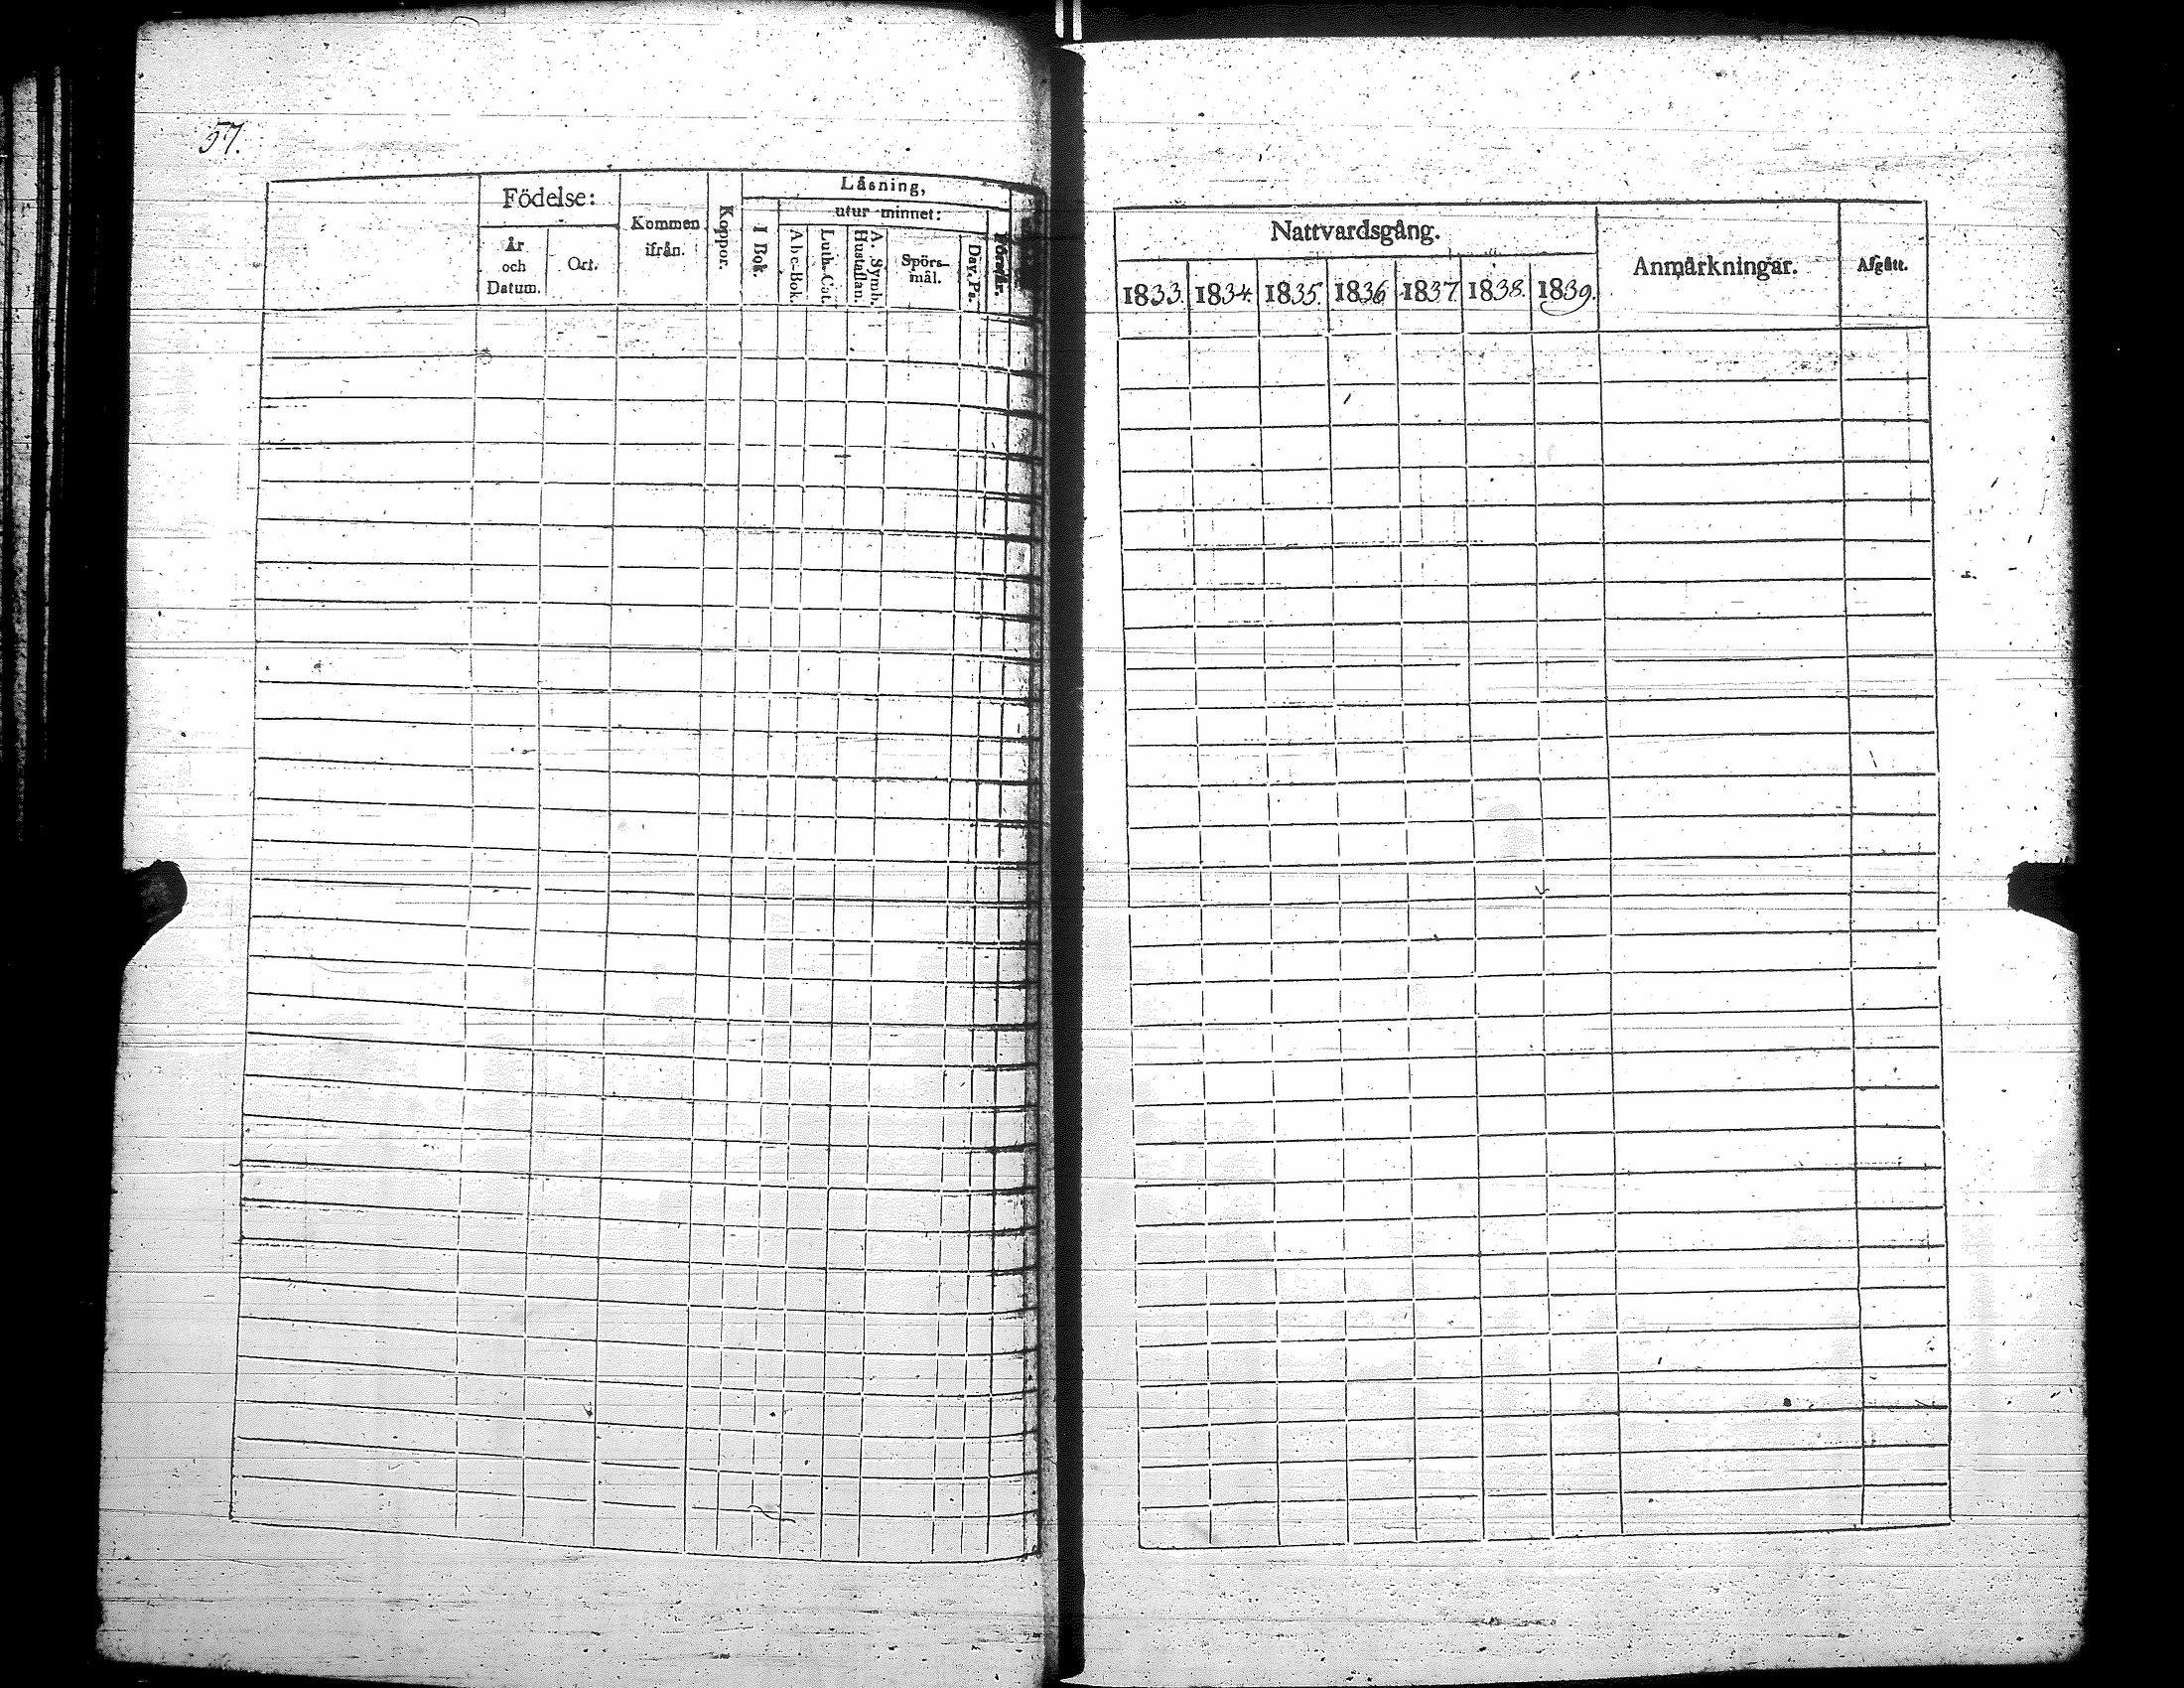 57.
Födelse:
År
och
Datum.
Ort.
Kommen
ifrån.
Koppor.
Läsning,
I Bok.
utur minnet:
Abc-Bok.
Luth. Cat.
A. Symb.
Hustaflan.
Spörs-
mål.
Dav. Ps.
Nattvardsgång.
1833. 1834. 1835. 1836 1837. 1838. 1839.
Anmärkningar.
Afgått.